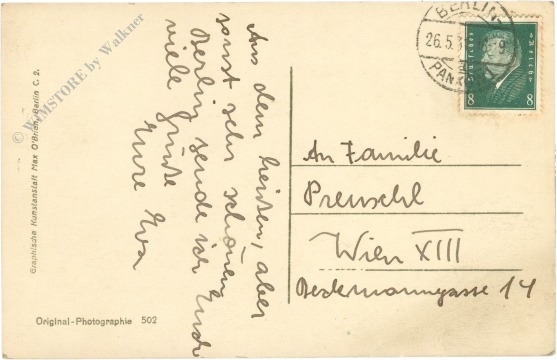 Aus dem heißen, aber
sonst sehr schönen
Berlin sende ich Euch
viele Grüße
Eure Eva
An Familie
Preuschl
Wien XIII
Beckmanngasse 14
BERLIN-
26.5.3
PANK
8 8
Original-Photographie 502
Graphische Kunstanstalt Max O'Brien, Berlin C 2.
© WIMSTORE by Walkner